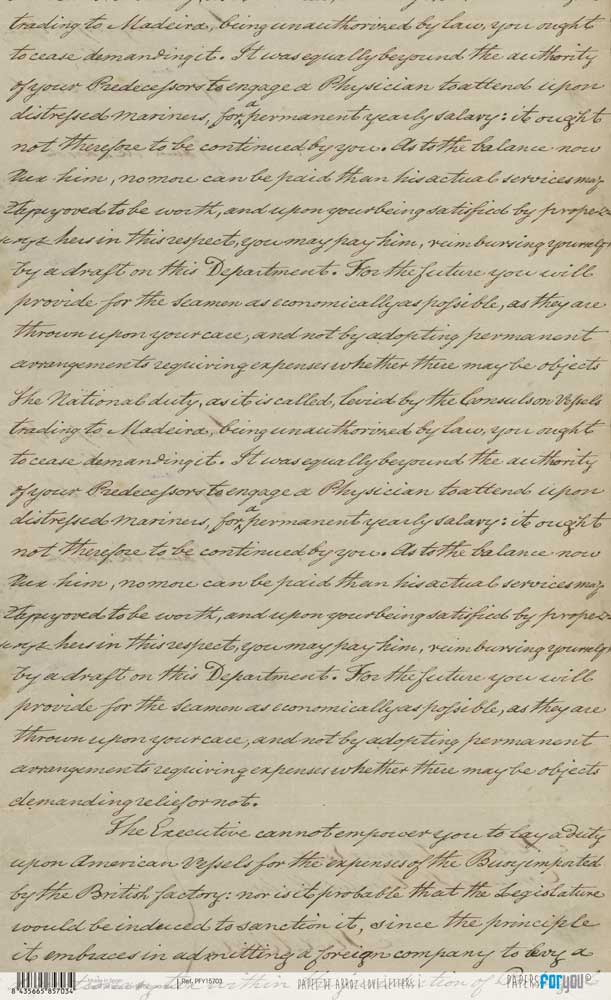 trading to Madeira, being unauthorized by law, you ought
to cease demanding it. It was equally beyound the authority
of your Predecessors to engage a Physician to attend upon
distressed mariners, for a permanent yearly salary: it ought
not therefore to be continued by you. As to the balance now
due him, no more can be paid than his actual services may
be proved to be worth, and upon your being satisfied by proper
vouchers in this respect, you may pay him, reimbursing yourself
by a draft on this Department. For the future you will
provide for the seamen as economically as possible, as they are
thrown upon your care, and not by adopting permanent
arrangements requiring expenses whether there may be objects
The National duty, as it is called, levied by the Consuls on Vessels
trading to Madeira, being unauthorized by law, you ought
to cease demanding it. It was equally beyound the authority
of your Predecessors to engage a Physician to attend upon
distressed mariners, for a permanent yearly salary: it ought
not therefore to be continued by you. As to the balance now
due him, no more can be paid than his actual services may
be proved to be worth, and upon your being satisfied by proper
vouchers in this respect, you may pay him, reimbursing yourself
by a draft on this Department. For the future you will
provide for the seamen as economically as possible, as they are
thrown upon your care, and not by adopting permanent
arrangements requiring expenses whether there may be objects
demanding relief or not.
The Executive cannot empower you to lay a duty
upon American Vessels for the expenses of the Buoy imported
by the British factory: nor is it probable that the Legislature
would be induced to sanction it, since the principle
it embraces in admitting a foreign company to levy a
within the
8 435665 857034
Ref. PFY15703
PAPEL DE ARROZ LOVE LETTERS I
PAPERSFORyou®